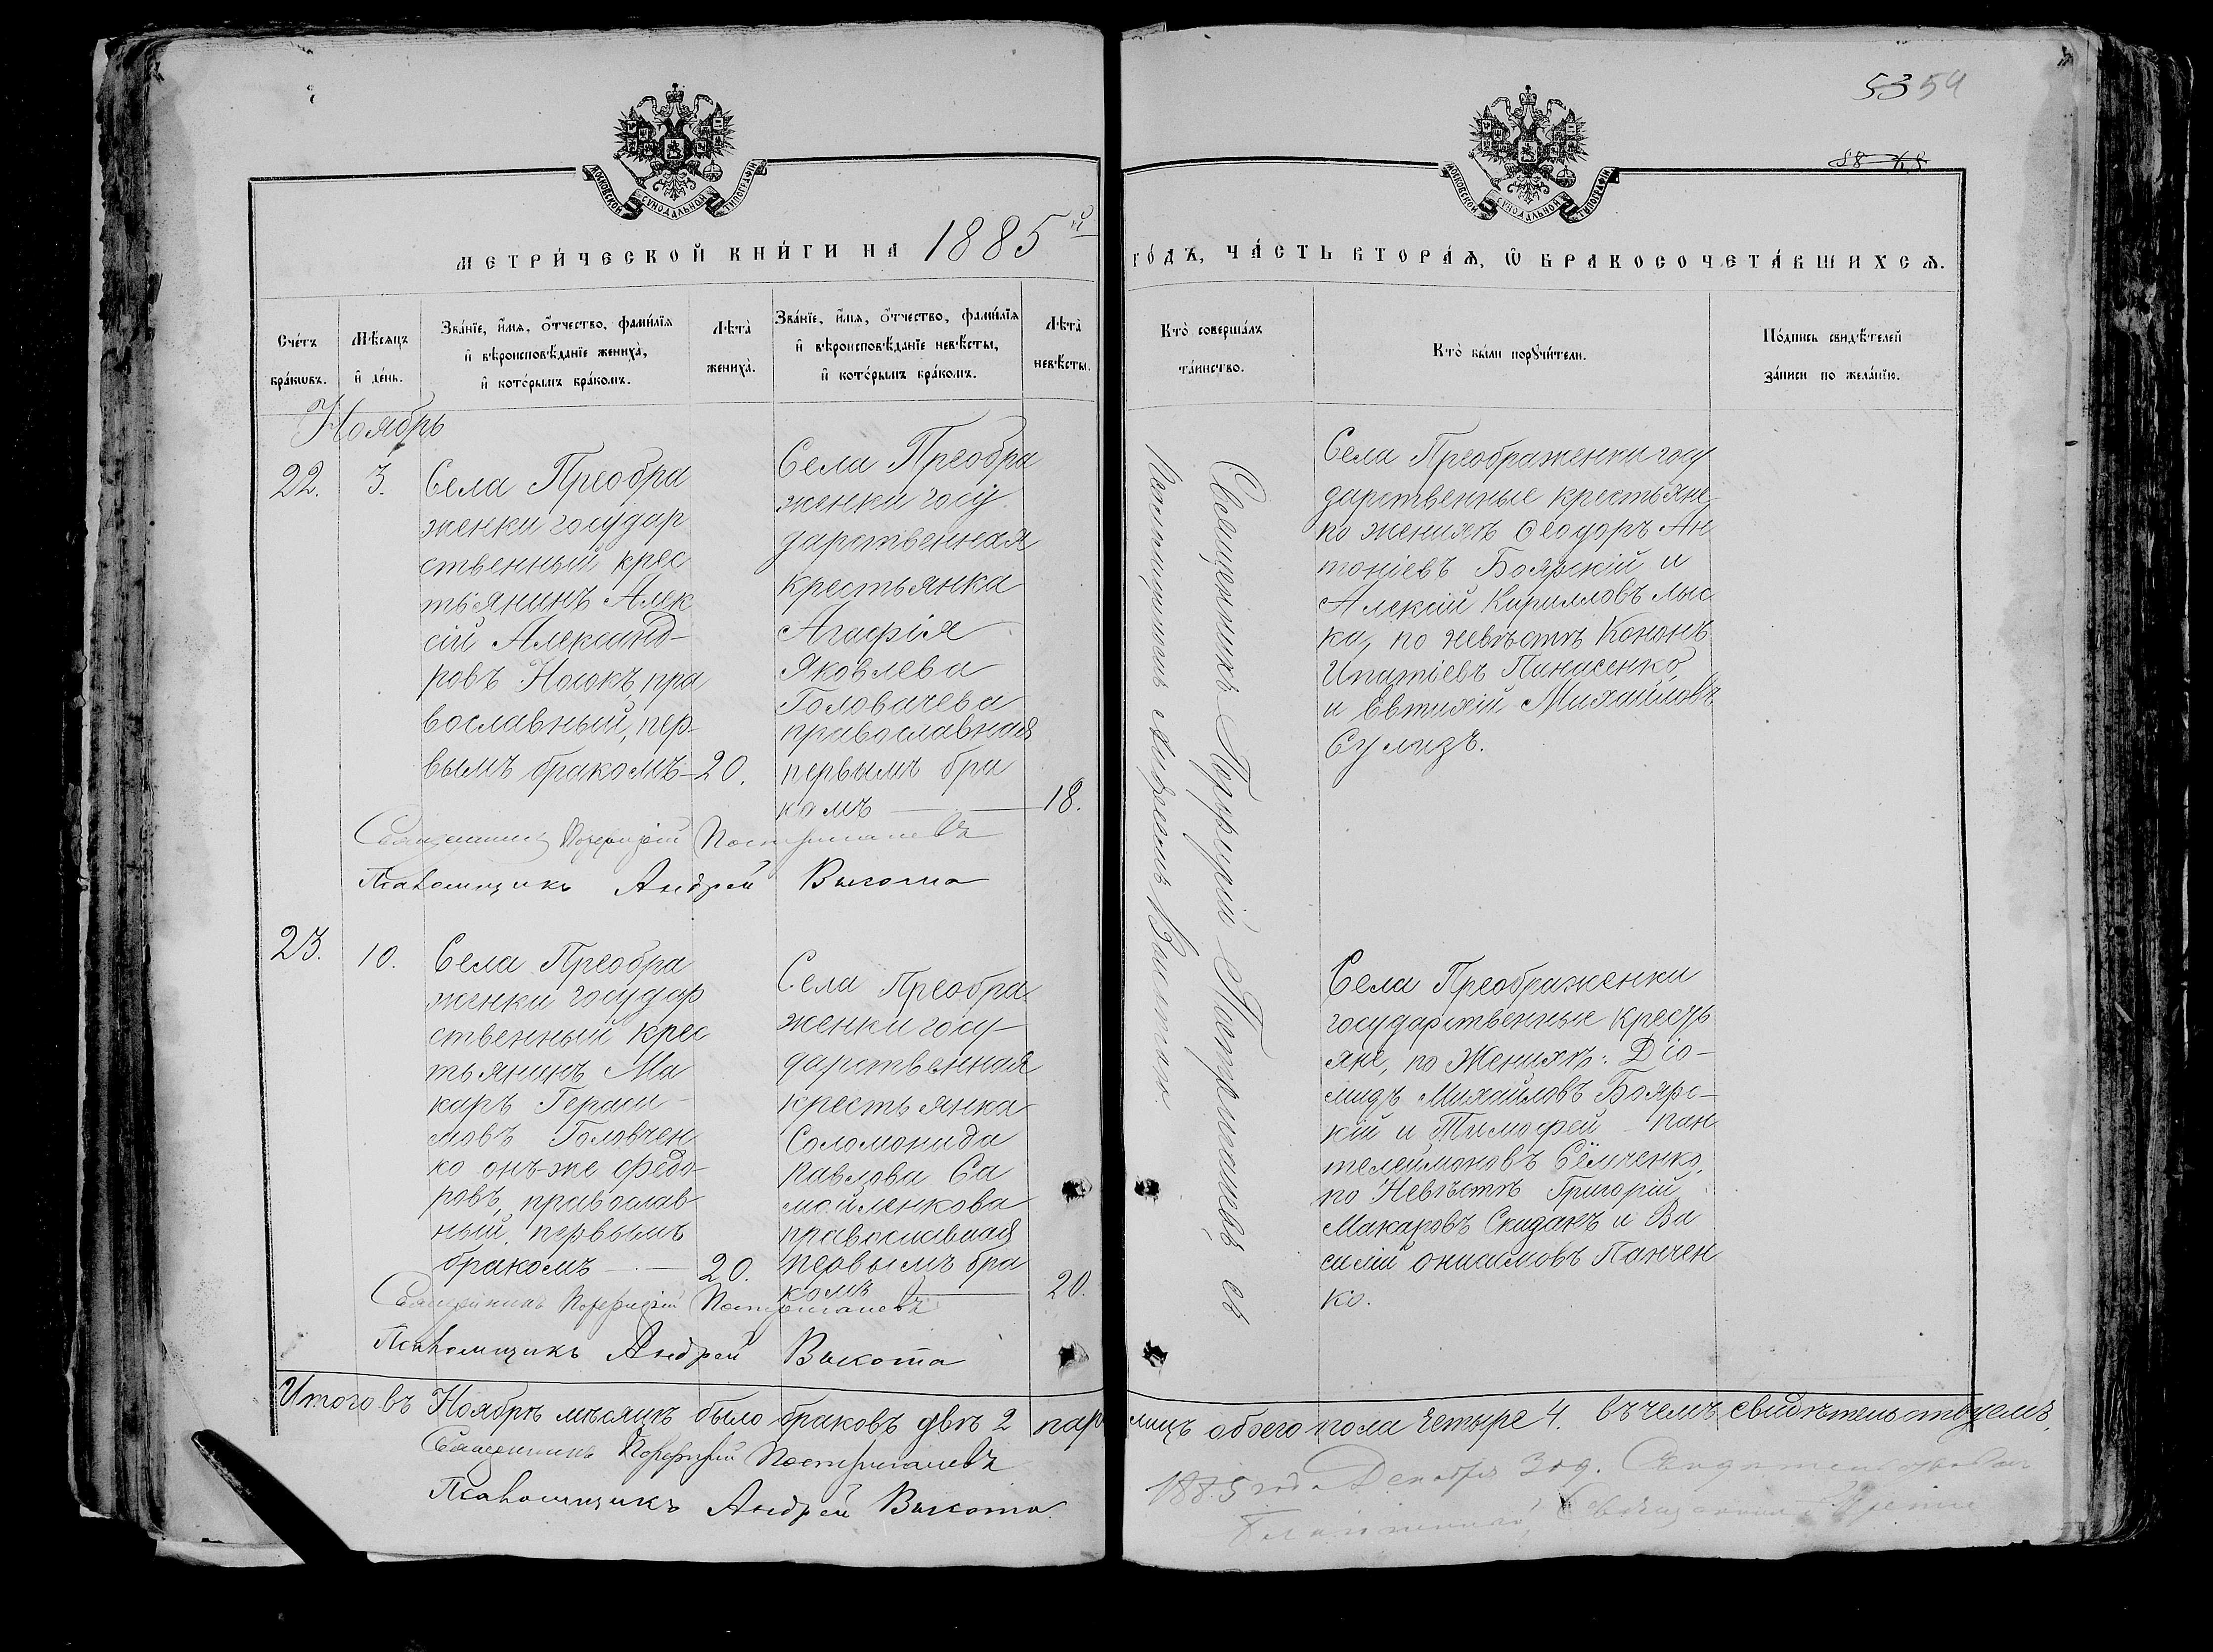 53 54
88 68
МОСКОВСКОЙ СѴНОДАЛЬНОЙ ТИПОГРАФІИ
МОСКОВСКОЙ СѴНОДАЛЬНОЙ ТИПОГРАФІИ
МЕТРИ́ЧЕСКОЙ КНИ́ГИ НА 1885й
ГО́ДЪ, ЧА́СТЬ ВТОРА́Ѧ, Ѡ҆ БРАКОСОЧЕТА́ВШИХСѦ.
Сче́тъ
бра́кѡвъ.
Мѣ́сѧцъ
и҆ де́нь.
Зва́нїе, и҆́мѧ, ѻ҆́тчество, фами́лїѧ
и҆ вѣроисповѣ́данїе жениха̀,
и҆ кото́рымъ бра́комъ.
Лѣта̀
жениха̀.
Зва́нїе, и҆́мѧ, ѻ҆́тчество, фами́лїѧ
и҆ вѣроисповѣ́данїе невѣ́сты,
и҆ кото́рымъ бра́комъ.
Лѣта̀
невѣ́сты.
Кто̀ соверша́лъ
та́инство.
Кто̀ бы́ли порꙋчи́тели.
По́дпись свидѣ́телей
за́писи по жела́нїю.
Ноябрь
22.
3.
Села Преобра
женки государ
ственный крес
тьянинъ Алек
сій Александ-
ровъ Носокъ, пра
вославный, пер-
вымъ бракомъ-
20.
Села Преобра
женки госу
дарственная
крестьянка
Агафія
Яковлева
Головачева
православная
первымъ бра
комъ
18.
Священникъ Порфирій Постригачевъ
Псаломщикъ Андрей Высота
Священникъ Порфирій Постригачевъ съ
Псаломщикомъ Андреемъ Высотою.
Села Преображенки госу
дарственные крестьяне,
по женихѣ Ѳеодоръ Ан
тоніевъ Боярскій и
Алексій Кирилловъ Лыс
ка, по невѣстѣ Кононъ
Ипатіевъ Панасенко,
и Евтихій Михайловъ
Сулизъ.
23.
10.
Села Преобра
женки государ
ственный крес
тьянинъ Ма
каръ Гераси-
мовъ Головчен
ко онъ-же Федо-
ровъ, православ
ный, первымъ
бракомъ
20.
Села Преобра
женки госу-
дарственная
крестьянка
Соломонида
Павлова Са
мойленкова
православная
первымъ бра
комъ
20.
Священникъ Порфирій Постригачевъ
Псаломщикъ Андрей Высота
Села Преображенки
государственные кресть
яне, по Женихѣ: Діо-
мидъ Михайловъ Боярс-
кій и Тимофей Пан
телеймоновъ Сёмченко,
по Невѣстѣ Григорій
Макаровъ Скидакъ и Ва
силій Онисимовъ Панчен
ко.
Итого въ Ноябрѣ мѣсяцѣ было браковъ двѣ 2 пар лицъ обоего пола четыре 4. въ чемъ свидѣтельствуемъ.
Священникъ Порфирій Постригачевъ
Псаломщикъ Андрей Высота.
1885 года Декабря 3 д. Свидѣтельствовалъ
Благочинный, Священникъ